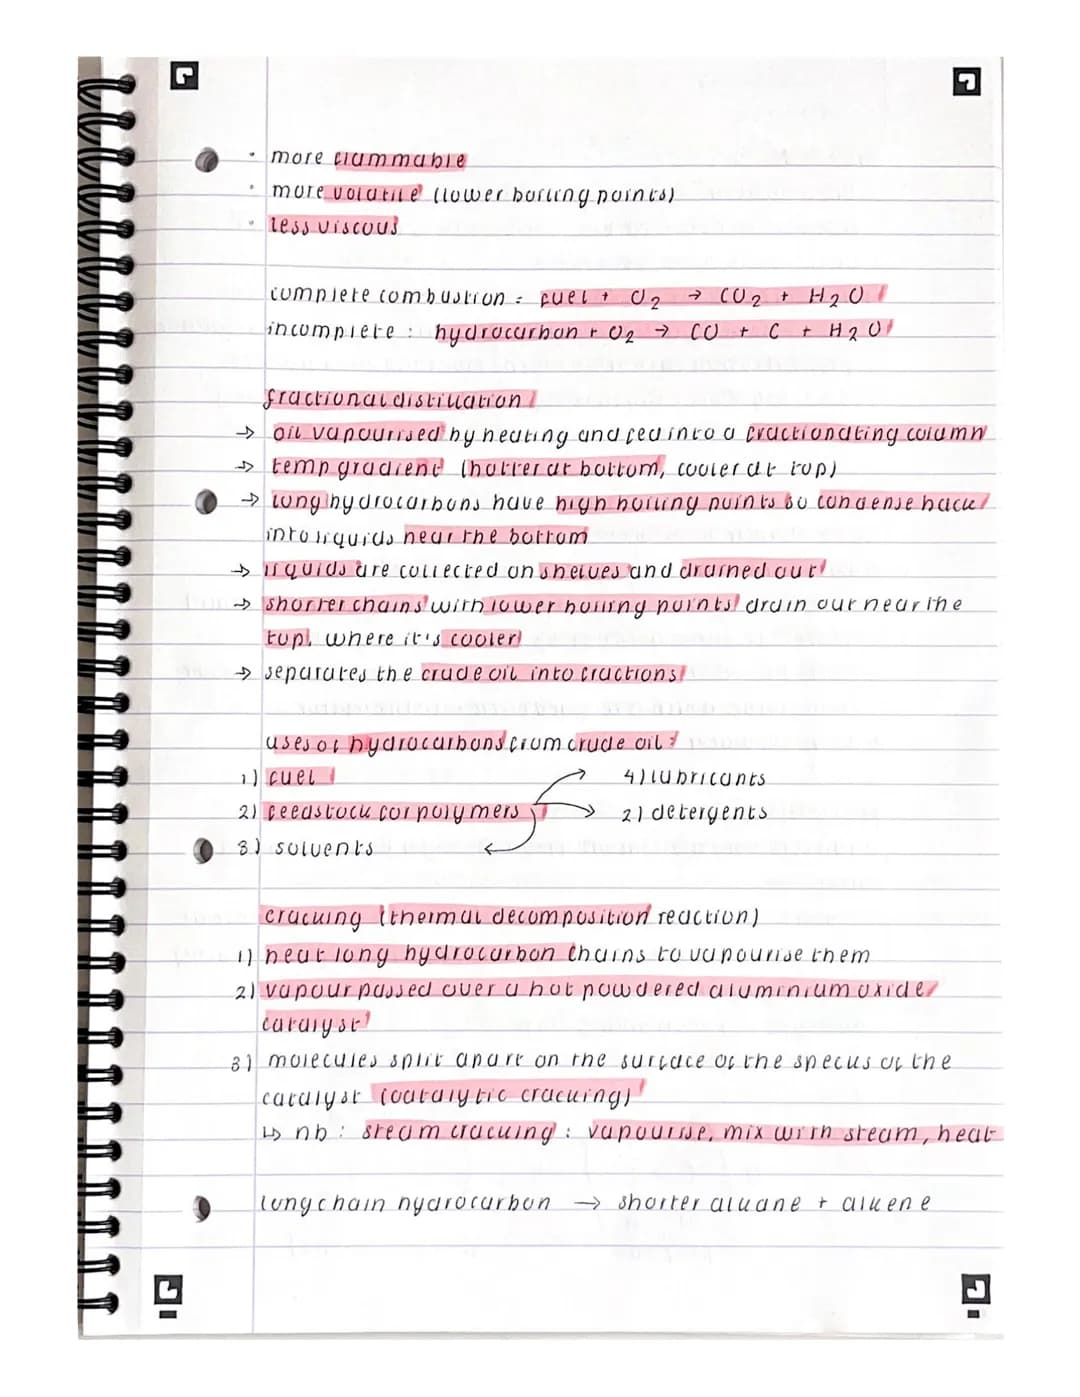 · more flammable
· more volatile (lower boiling points)
· less viscous
complete combustion : fuel + O₂ → CO₂ + H₂O
incomplete : hydrocarbon + O₂ → CO + C + H₂O
fractional distillation
→ oil vapourised by heating and fed into a fractionating column
→ temp gradient (hotter at bottom, cooler at top)
→ long hydrocarbons have high boiling points so condense back
into liquids near the bottom
→ liquids are collected on shelves and drained out
→ shorter chains with lower boiling points drain out near the
top, where it's cooler
→ separates the crude oil into fractions
uses of hydrocarbons from crude oil :
1) fuel 4) lubricants
2) feedstock for polymers → 2) detergents
3) solvents
cracking (thermal decomposition reaction)
1) heat long hydrocarbon chains to vapourise them
2) vapour passed over a hot powdered aluminium oxide
catalyst
3) molecules split apart on the surface of the specus of the
catalyst (catalytic cracking)
↳ nb : steam cracking : vapourise, mix with steam, heat
long chain hydrocarbon → shorter alkane + alkene